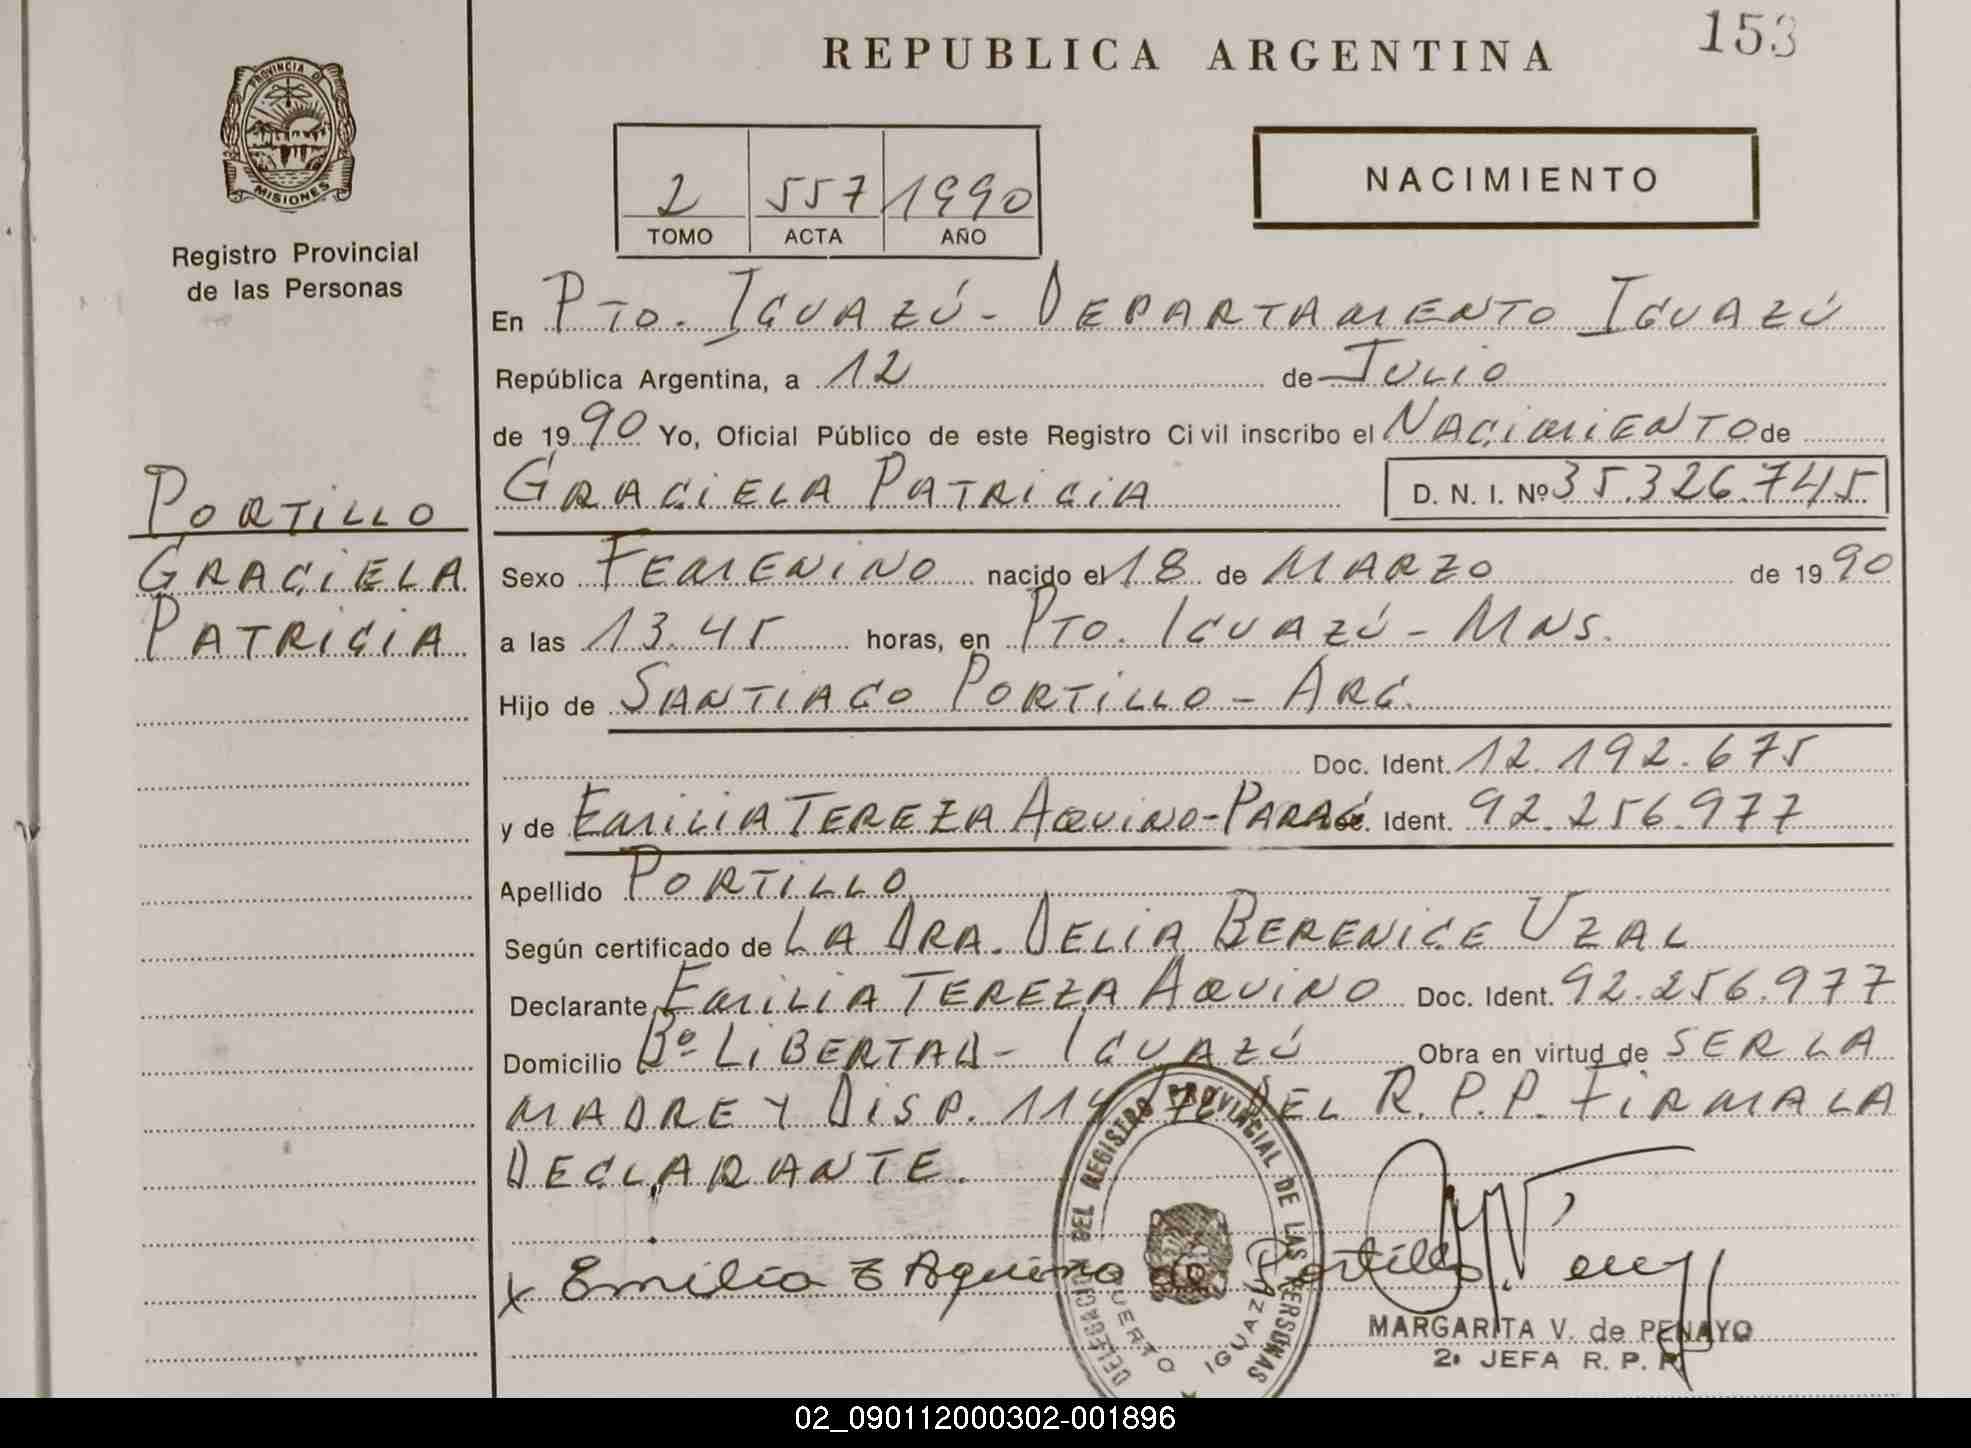 REPUBLICA ARGENTINA
153
PROVINCIA DE
MISIONES
Registro Provincial
de las Personas
2 557 1990
TOMO ACTA AÑO
NACIMIENTO
En Pto. Iguazú - Departamento Iguazú
República Argentina, a 12 de Julio
de 1990 Yo, Oficial Público de este Registro Civil inscribo el Nacimiento de
Graciela Patricia D. N. I. Nº 35.326.745
Portillo
Graciela
Patricia
Sexo Femenino nacido el 18 de Marzo de 1990
a las 13.45 horas, en Pto. Iguazú - Mns.
Hijo de Santiago Portillo - Arg.
Doc. Ident. 12.192.675
y de Emilia Tereza Aquino - Parag. Doc. Ident. 92.256.977
Apellido Portillo
Según certificado de La Dra. Delia Berenice Uzal
Declarante Emilia Tereza Aquino Doc. Ident. 92.256.977
Domicilio Bº Libertad - Iguazú Obra en virtud de ser la
madre y Disp. 114/76 del R.P.P. Firma la
declarante.
x Emilia T Aquino de Portillo
DELEGACION DEL REGISTRO PROVINCIAL DE LAS PERSONAS
PUERTO IGUAZU
MARGARITA V. de PENAYO
2ª JEFA R. P. P.
02_090112000302-001896